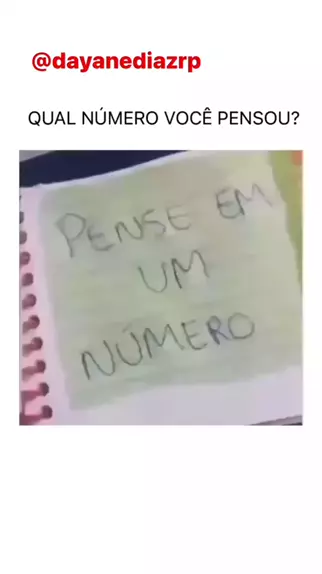 @dayanediazrp
QUAL NÚMERO VOCÊ PENSOU?
PENSE EM
UM
NÚMERO